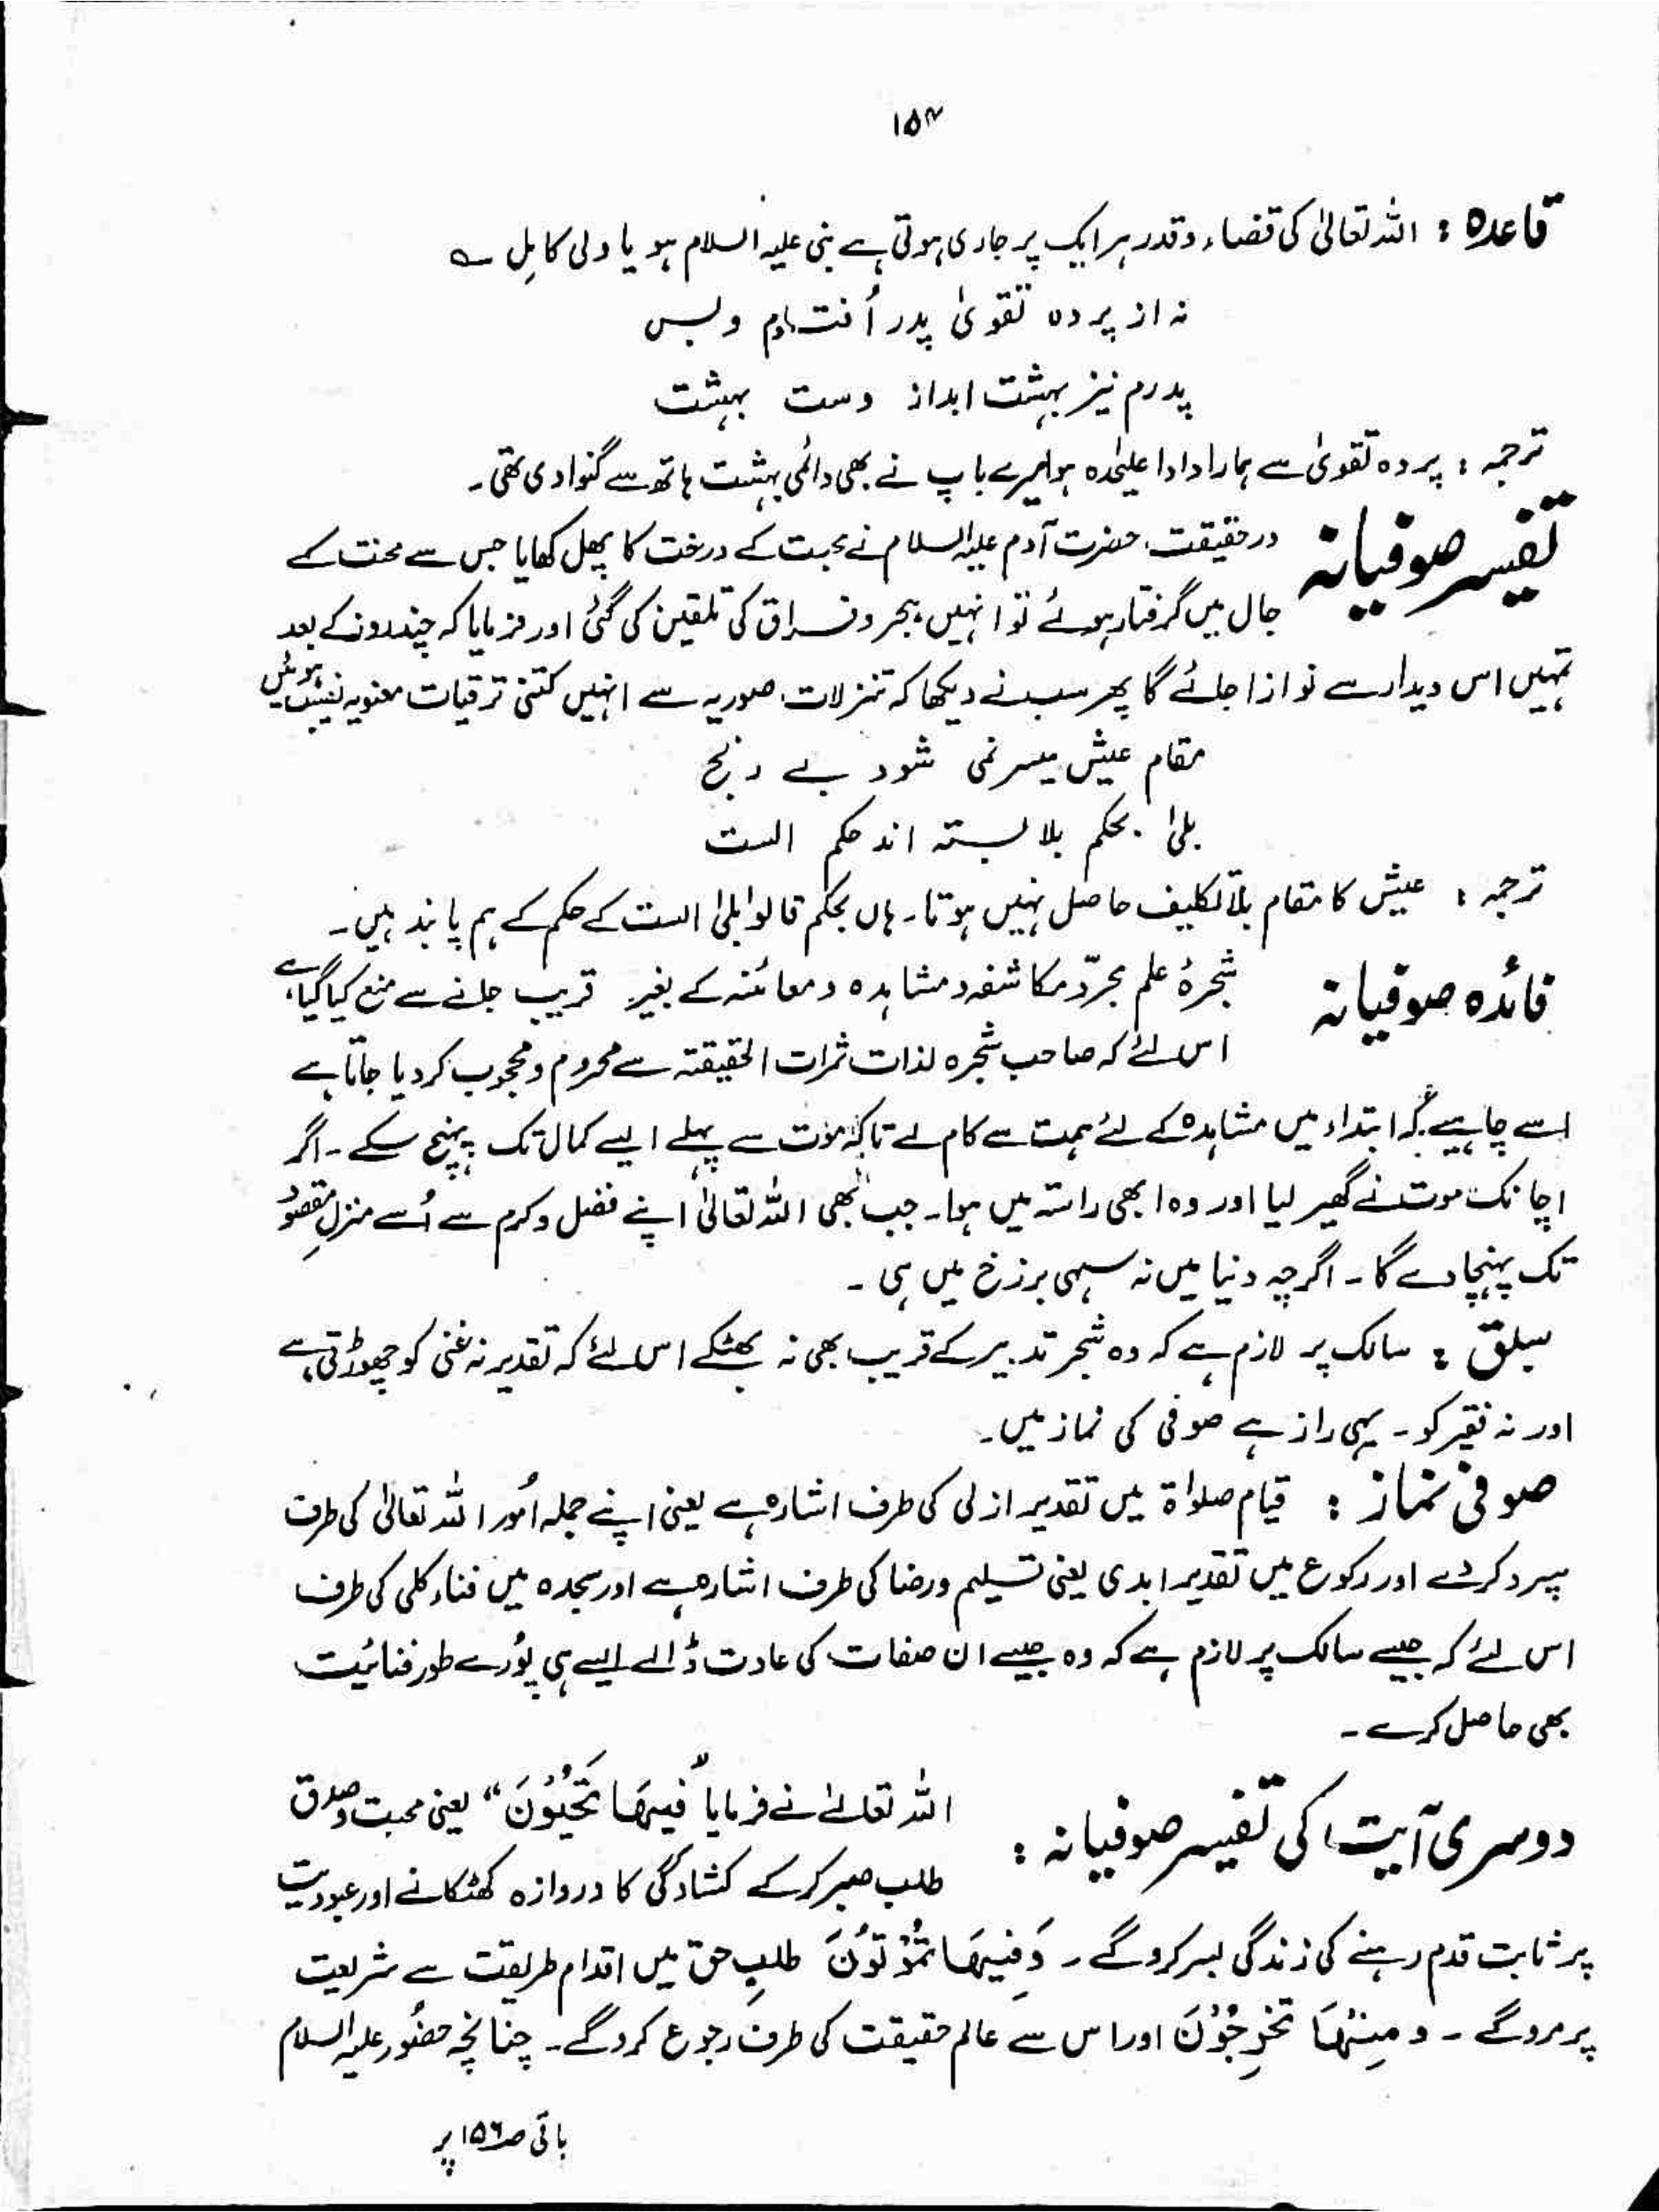 ۱۵۴
قاعدہ : اللہ تعالیٰ کی قضاء و قدر ہر ایک پر جاری ہوتی ہے نبی علیہ السلام ہو یا ولی کامِل ؎
نہ از پردہ تقویٰ پدر اُفتادم و بس
پدرم نیز بہشت ابداز دست بہشت
ترجمہ : پردہ تقویٰ سے ہمارا دادا علیٰحدہ ہوا میرے باپ نے بھی دائمی بہشت ہاتھ سے گنوا دی تھی۔
تفسیر صوفیانہ درحقیقت حضرت آدم علیہ السلام نے محبت کے درخت کا پھل کھایا جس سے محنت کے
جال میں گرفتار ہوئے تو انہیں ہجر و فراق کی تلقین کی گئی اور فرمایا کہ چند روز کے بعد
تمہیں اس دیدار سے نوازا جائے گا پھر سب نے دیکھا کہ تنزلات صوریہ سے انہیں کتنی ترقیات معنویہ نصیب ہوئیں
مقام عیش میسر نمی شود بے رنج
بلیٰ بحکم بلا بستہ اند حکم الست
ترجمہ : عیش کا مقام بلا تکلیف حاصل نہیں ہوتا۔ ہاں بحکم قالوا بلیٰ الست کے حکم کے ہم پابند ہیں۔
فائدہ صوفیانہ شجرۂ علم مجرّد مکاشفہ و مشاہدہ و معائنہ کے بغیر قریب جانے سے منع کیا گیا ہے
اس لئے کہ صاحب شجرہ لذات ثمرات الحقیقتہ سے محروم و محجوب کر دیا جاتا ہے
اسے چاہیے کہ ابتداء میں مشاہدہ کے لئے ہمت سے کام لے تاکہ موت سے پہلے ایسے کمال تک پہنچ سکے۔ اگر
اچانک موت نے گھیر لیا اور وہ ابھی راستہ میں ہوا۔ جب بھی اللہ تعالیٰ اپنے فضل و کرم سے اُسے منزلِ مقصود
تک پہنچا دے گا۔ اگرچہ دنیا میں نہ سہی برزخ میں ہی۔
سبق : سالک پر لازم ہے کہ وہ شجر تدبیر کے قریب بھی نہ بھٹکے اس لئے کہ تقدیر نہ غنی کو چھوڑتی ہے
اور نہ فقیر کو۔ یہی راز ہے صوفی کی نماز میں۔
صوفی نماز : قیام صلواۃ میں تقدیر ازلی کی طرف اشارہ ہے یعنی اپنے جملہ اُمور اللہ تعالیٰ کی طرف
سپرد کر دے اور رکوع میں تقدیر ابدی یعنی تسلیم و رضا کی طرف اشارہ ہے اور سجدہ میں فناء کلی کی طرف
اس لئے کہ جیسے سالک پر لازم ہے کہ وہ جیسے ان صفات کی عادت ڈالے ایسے ہی پُورے طور فنائیت
بھی حاصل کرے۔
دوسری آیت کی تفسیر صوفیانہ : اللہ تعالےٰ نے فرمایا "فِیْهَا تَحْیَوْنَ" یعنی محبت و صدق
طلب صبر کر کے کشادگی کا دروازہ کھٹکانے اور عبودیت
پر ثابت قدم رہنے کی زندگی بسر کرو گے۔ وَفِیْهَا تَمُوْتُوْنَ طلبِ حق میں اقدام طریقت سے شریعت
پر مرو گے۔ و مِنْهَا تُخْرَجُوْنَ اور اس سے عالم حقیقت کی طرف رجوع کرو گے۔ چنانچہ حضُور علیہ السلام
باقی صـ۱۵۶ پر